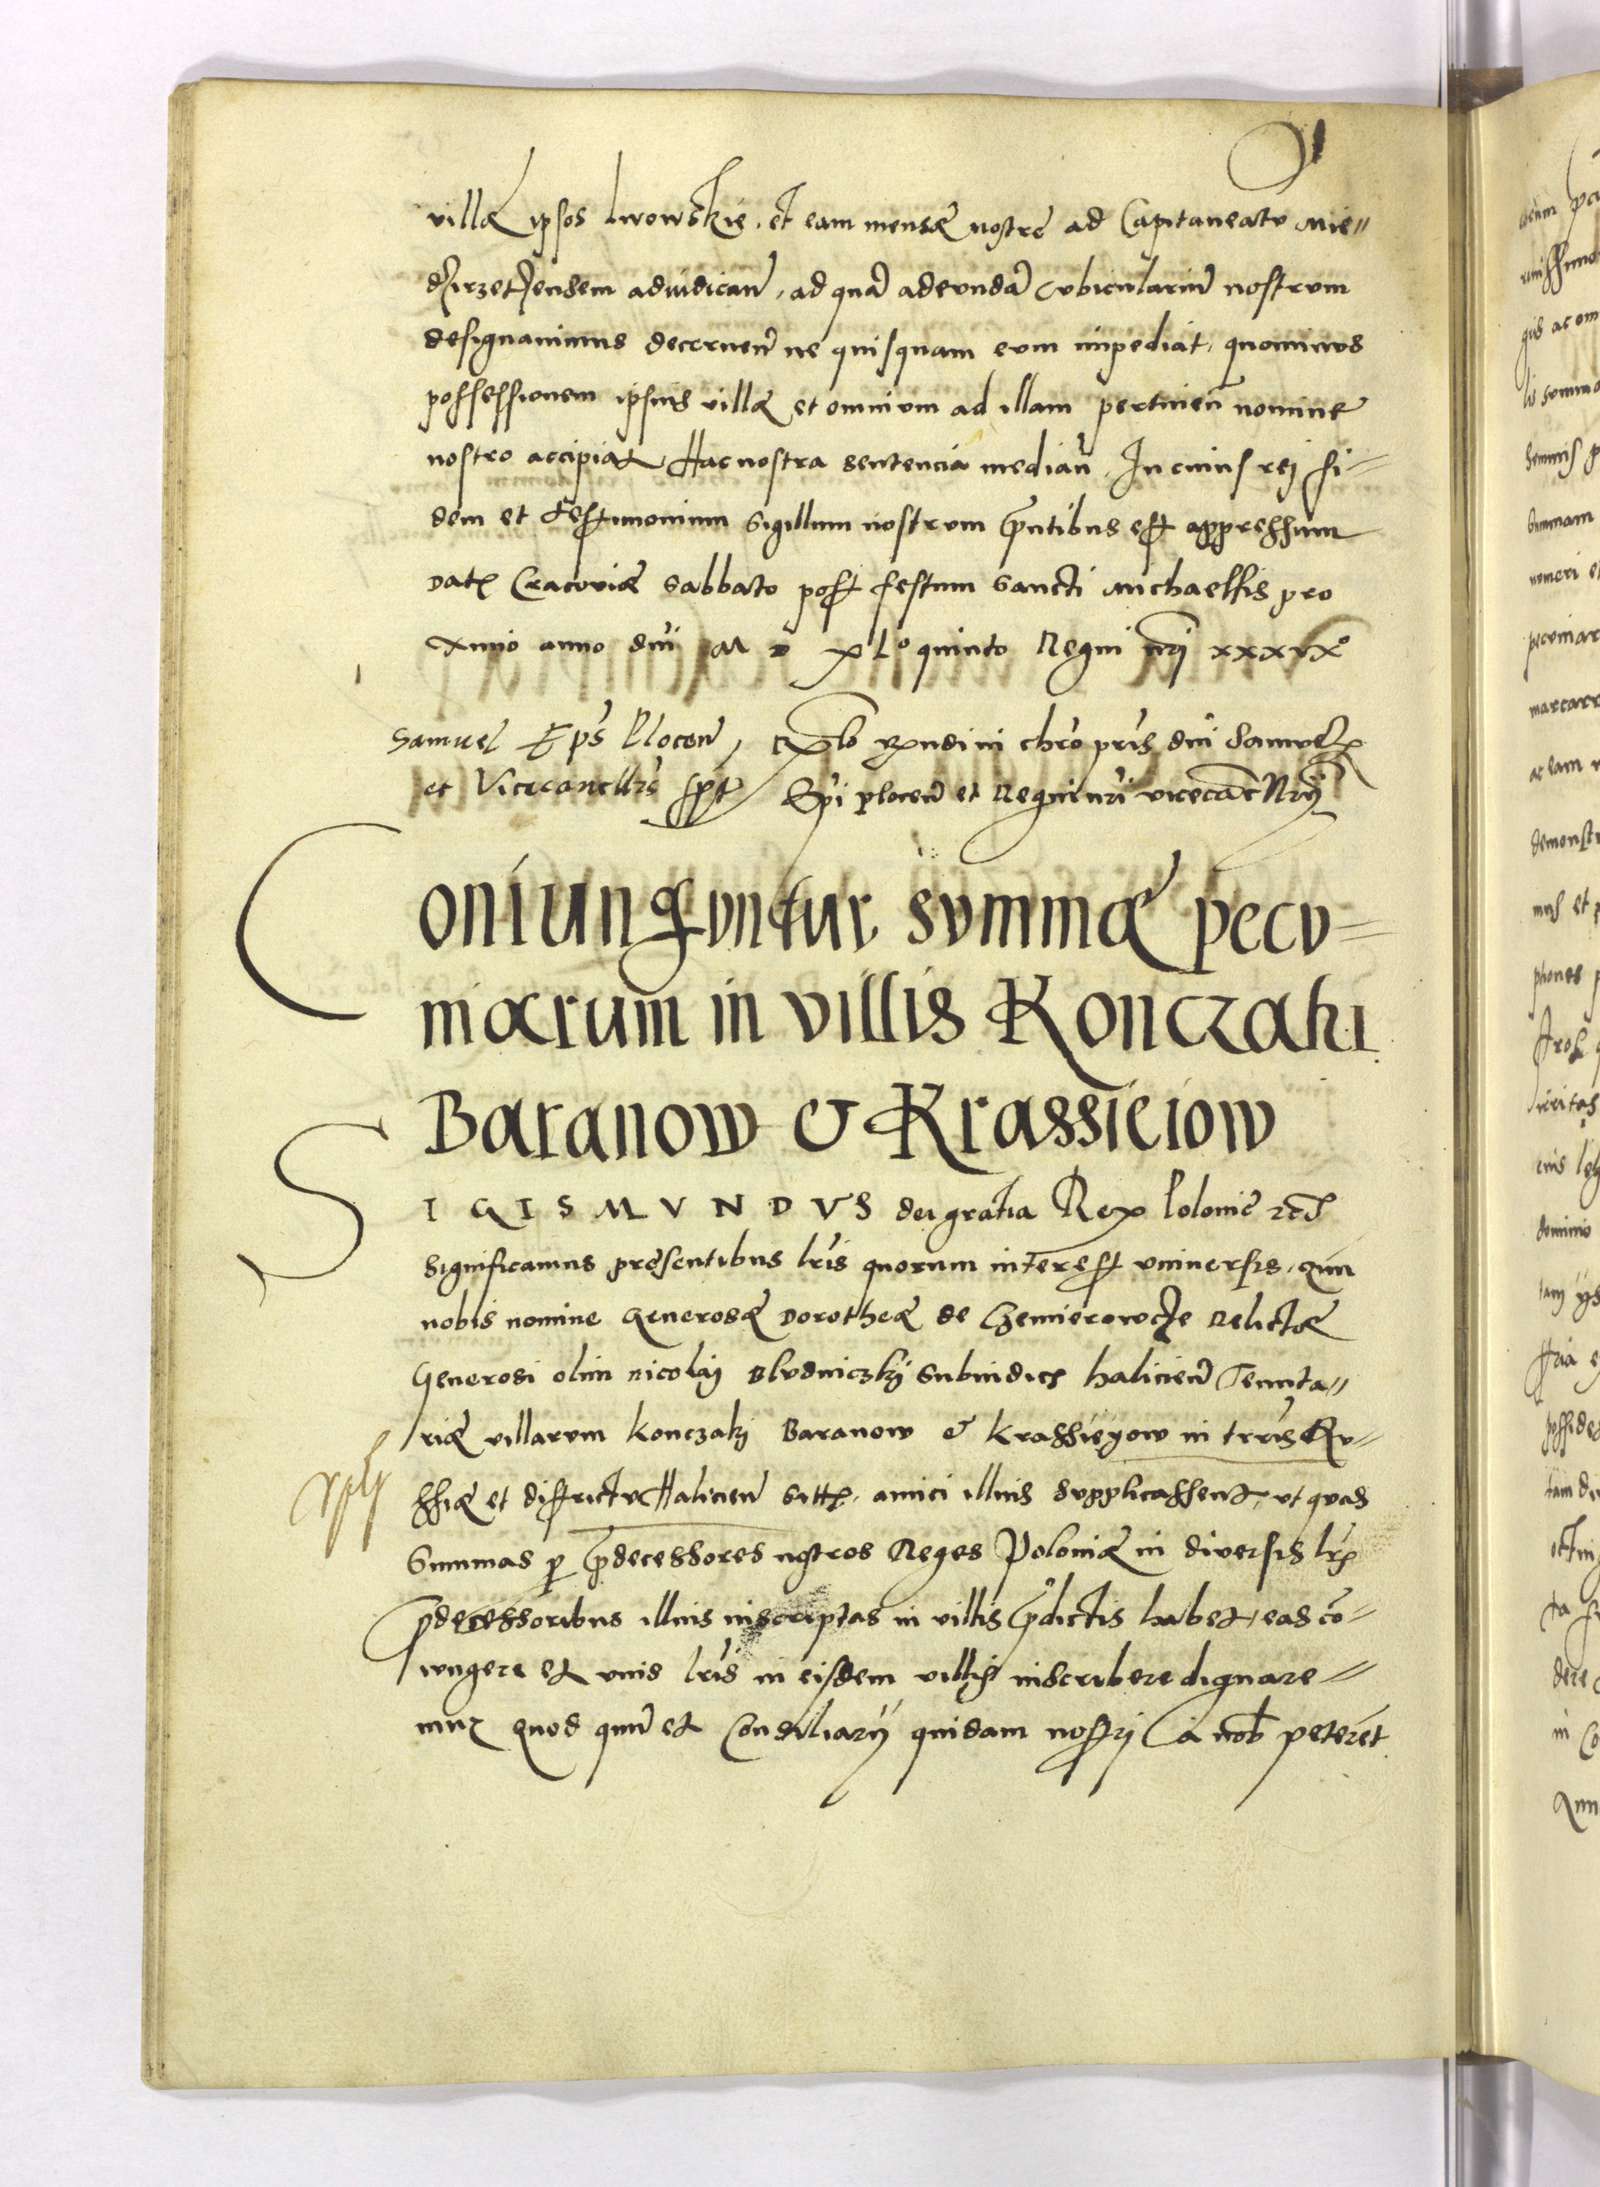 villæ ipsos lwowskie, et eam mensæ nostre ad Capitaneatu Mie=
dzirzeczensem adiudican̄, ad quā adeundā Cubiculariū nostrum
designavimus decernen̄ ne quisquam eum impediat, quominus
possessionem ipsius villæ et omnium ad illam pertinen̄ nomine
nostro accipiat Hac nostra sentencia median̄. In cuius rej fi=
dem et testimonium sigillum nostrum p̄ntibus est appressum
Dat Cracoviæ Sabbato post festum Sancti Michaellis pro
ximo anno dn̄i M D XLo quinto Regni nr̄j xxxixo
Samuel Ep̄s Plocen̄, Rēlo Rndi in chr̄o pr̄is dn̄i Samuelis
et Vicecancellrīs sspt Ep̄i plocen̄ et Regni nr̄i vicecanc̄ Nrij
Coniunguntur summæ pecu=
niarum in villis Konczaki
Baranow & Krassieiow
SIGISMVNDVS dei gratia Rex Polonie etc̄
Significamus presentibus lr̄is quorum interest universis, qūm
nobis nomine Generosæ Dorotheæ de Czemierowcze Relictæ
Generosi olim Nicolaj Bludniczkj Subiudicis halicien̄ Tenuta=
riæ villarum Konczakj Baranow & Krassieyow in terr̄is Ru=
ssiæ et districtu Halicien̄ sitt, amici illius supplicassent, ut quas
Summas p p̄decessores nostros Reges Poloniæ in diversis lr̄is
p̄decessoribus illius inscriptas in villis p̄dictis habet, eas cō=
iungere et unis lr̄is in eisdem villis inscribere dignare=
mur Quod quūm et Consiliarij quidam nostrj a nob̄ peterēt